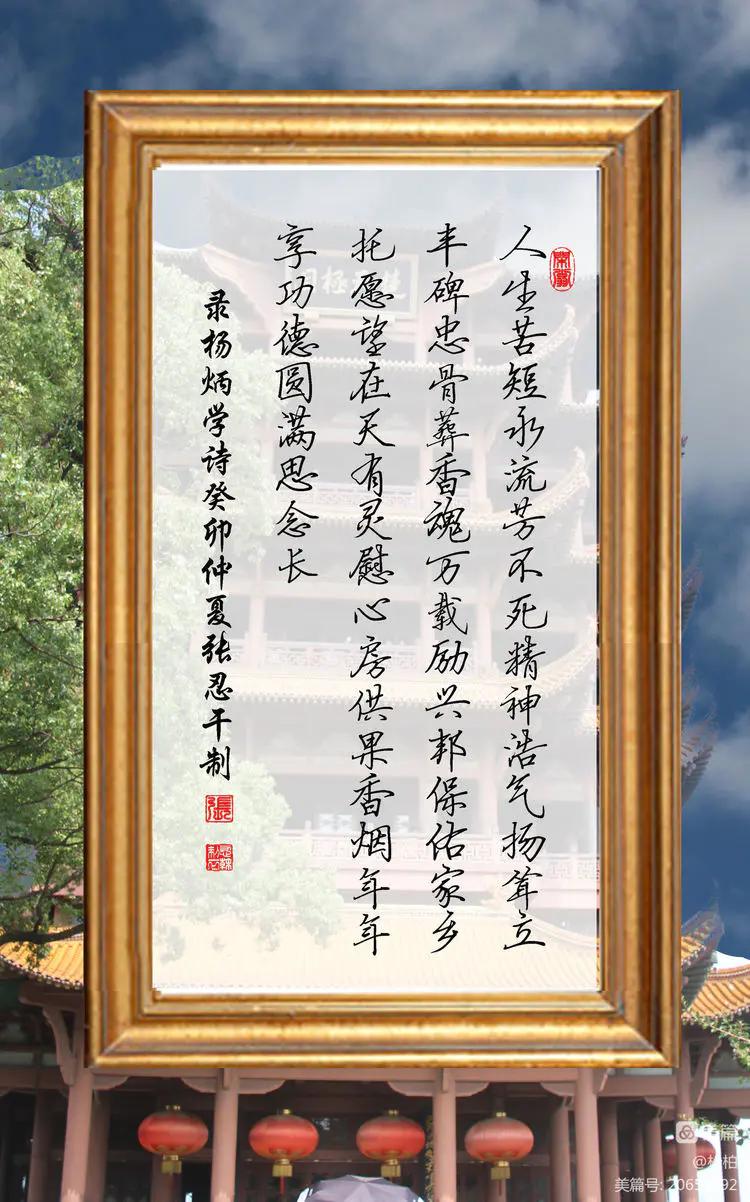 人生苦短永流芳不死精神浩气扬耸立
丰碑忠骨葬香魂万载励兴邦保佑家乡
托愿望在天有灵慰心房供果香烟年年
享功德圆满思念长
录杨炳学诗癸卯仲夏张忍干制
美篇
美篇号: